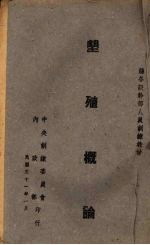 縣各級幹部人員訓練教材
墾殖概論
中央訓練委員會
內政部印行
民國三十一年一月